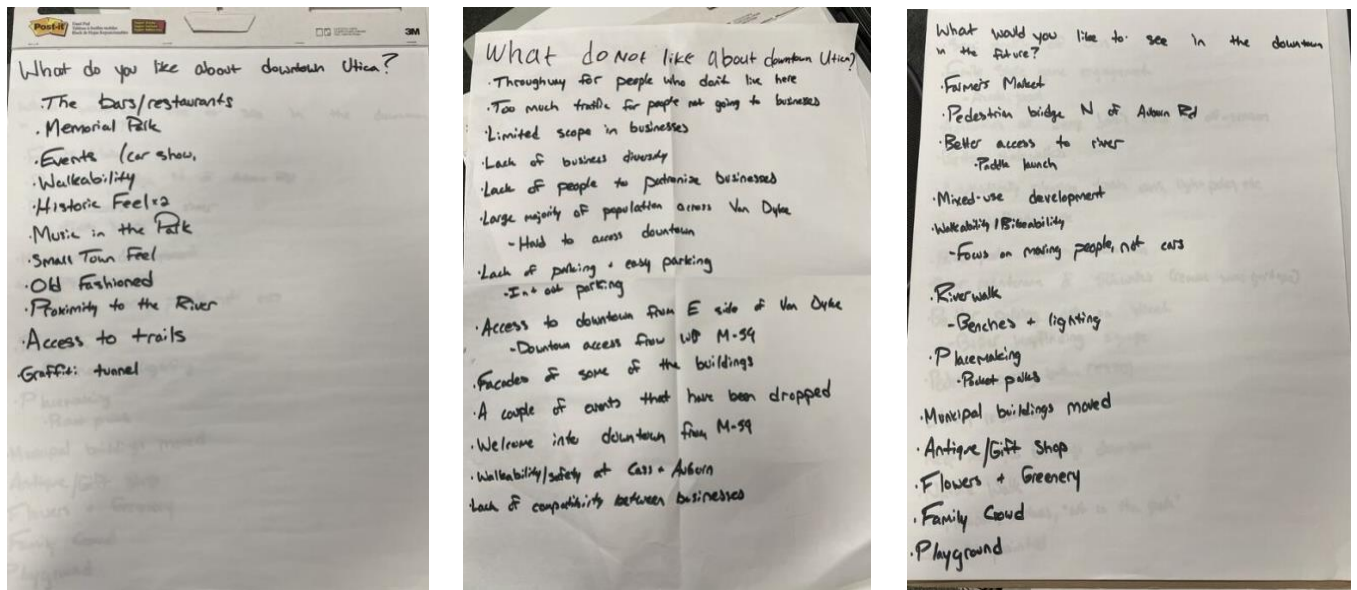 Post-it
3M
What do you like about downtown Utica?
· The bars/restaurants
· Memorial Park
· Events /car show,
· Walkability
· Historic Feel x2
· Music in the Park
· Small Town Feel
· Old Fashioned
· Proximity to the River
· Access to trails
· Graffiti tunnel
What do not like about downtown Utica?
· Throughway for people who don't live here
· Too much traffic for people not going to businesses
· Limited scope in businesses
· Lack of business diversity
· Lack of people to patronize businesses
· Large majority of population across Van Dyke
- Hard to access downtown
· Lack of parking + easy parking
- In + out parking
· Access to downtown from E side of Van Dyke
- Downtown access from M-59
· Facades of some of the buildings
· A couple of events that have been dropped
· Welcome into downtown from M-59
· Walkability/safety at Cass + Auburn
· Lack of compatibility between businesses
What would you like to see in the downtown
in the future?
· Farmers Market
· Pedestrian bridge N of Auburn Rd
· Better access to river
· Paddle launch
· Mixed-use development
· Walkability / Bikeability
- Focus on moving people, not cars
· Riverwalk
- Benches + lighting
· Placemaking
· Pocket parks
· Municipal buildings moved
· Antique/Gift Shop
· Flowers + Greenery
· Family Crowd
· Playground